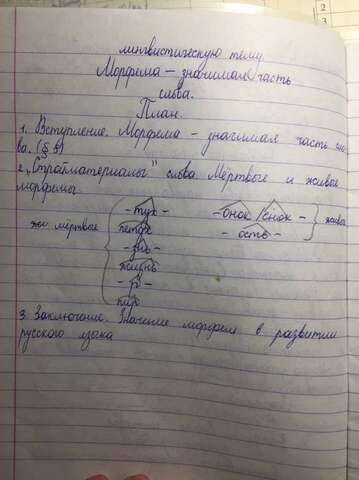 лингвистическую тему
Морфема – значимая часть
слова.
План.
1. Вступление. Морфема – значимая часть сло-
ва. (§ 5)
2. „Стройматериалы" слова. Мёртвые и живые
морфемы
мёртвые { - тух -    - онок / ёнок - } живые
петух    - ость -
- знь -
жизнь
- р -
пир
3. Заключение. Значение морфем в развитии
русского языка
2
3